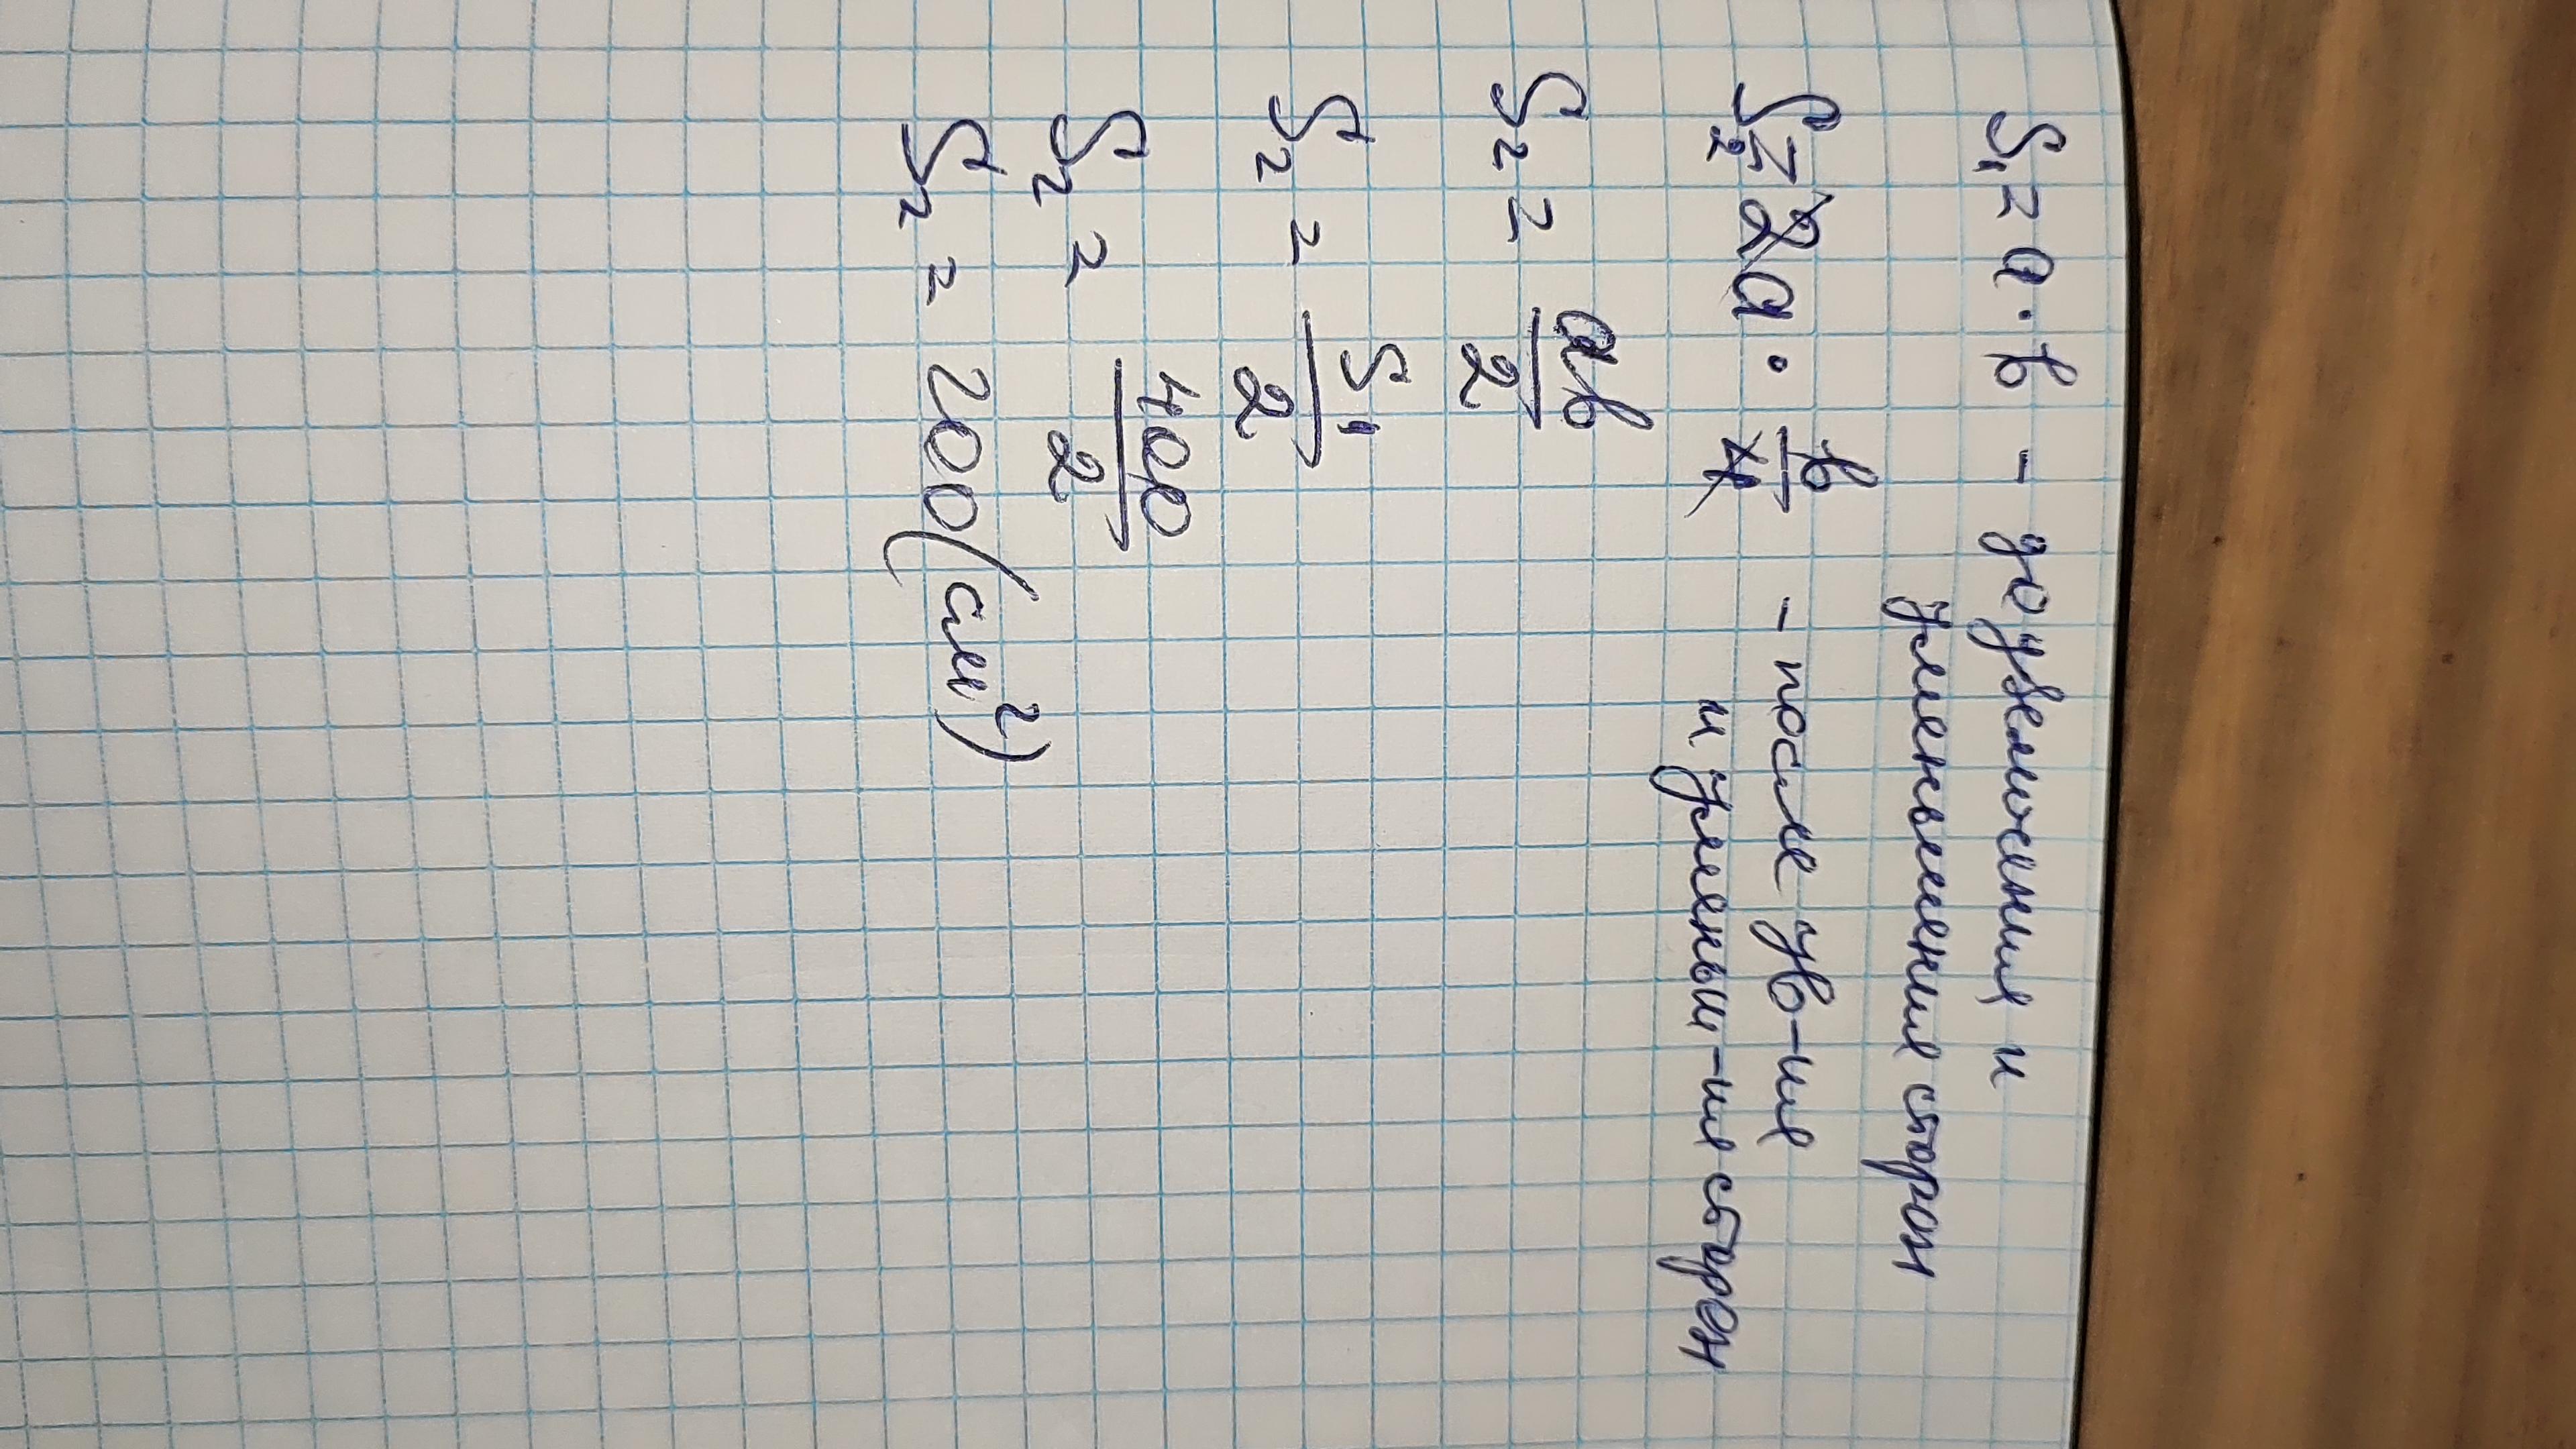 S₁ = a · b - до увеличения и
уменьшения сторон
S₂ = 2a · b/4 - после ув-ия
и уменьш-ия сторон
S₂ = ab/2
S₂ = S₁/2
S₂ = 400/2
S₂ = 200 (см²)